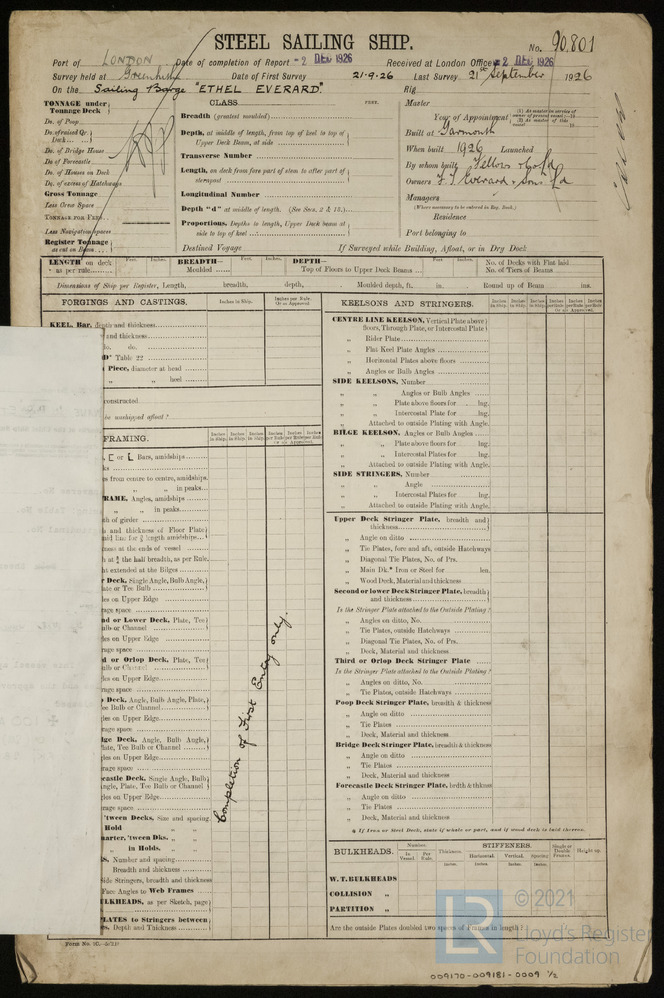 STEEL SAILING SHIP.
No. 90,801
Port of LONDON Date of completion of Report -2 DEC 1926 Received at London Office -2 DEC 1926
Survey held at Greenhithe Date of First Survey 21-9-26 Last Survey 21st September 1926
On the Sailing Barge "ETHEL EVERARD." Rig
TONNAGE under Tonnage Deck
Do. of Poop
Do. of raised Qr. Deck
Do. of Bridge House
Do. of Forecastle
Do. of Houses on Deck
Do. of excess of Hatchways
Gross Tonnage
Less Crew Space
TONNAGE FOR FEES
Less Navigation spaces
Register Tonnage as cut on Beam
CLASS
FEET.
Breadth (greatest moulded)
Depth, at middle of length, from top of keel to top of Upper Deck Beam, at side
Transverse Number
Length, on deck from fore part of stem to after part of sternpost
Longitudinal Number
Depth "d" at middle of length. (See Secs. 2 & 13.)
Proportions, Depths to Length, Upper Deck Beam at side to top of keel
Destined Voyage
If Surveyed while Building, Afloat, or in Dry Dock
Master
Year of Appointment
Built at Yarmouth
When built 1926 Launched
By whom built Fellows & Co Ld
Owners F. T. Everard & Sons Ld
Managers
(Where necessary to be entered in Reg. Book.)
Residence
Port belonging to
LENGTH on deck as per rule
BREADTH— Moulded
DEPTH— Top of Floors to Upper Deck Beams
No. of Decks with Flat laid
No. of Tiers of Beams
Dimensions of Ship per Register, Length, breadth, depth, Moulded depth, ft. in. Round up of Beam ins.
FORGINGS AND CASTINGS.
Inches in Ship.
Inches per Rule. Or as Approved.
KEEL, Bar, depth and thickness
and thickness
do. do.
Table 22
Piece, diameter at head
" " heel
constructed
be unshipped afloat?
FRAMING.
or Bars, amidships
es from centre to centre, amidships
" " in peaks
FRAME, Angles, amidships
" " in peaks
th of girder
h and thickness of Floor Plate
mid line for ¾ length amidships
ness at the ends of vessel
h at ¾ the half breadth, as per Rule
ht extended at the Bilges
r Deck, Single Angle, Bulb Angle, late or Tee Bulb
les on Upper Edge
rage space
nd or Lower Deck, Plate, Tee ulb or Channel
les on Upper Edge
rage space
d or Orlop Deck, Plate, Tee ulb or Channel
les on Upper Edge
rage space
p Deck, Angle, Bulb Angle, Plate, ee Bulb or Channel
les on Upper Edge
rage space
dge Deck, Angle, Bulb Angle, late, Tee Bulb or Channel
les on Upper Edge
rage space
castle Deck, Single Angle, Bulb ngle, Plate, Tee Bulb or Channel
gles on Upper Edge
rage space
'tween Decks, Size and spacing
Hold " "
uarter, 'tween Dks. " "
" in Holds. " "
S, Number and spacing
Breadth and thickness
ide Stringers, breadth and thickness
Face Angles to Web Frames
ULKHEADS, as per Sketch, page
LATES to Stringers between
es, Depth and Thickness
Completion of First Entry only.
KEELSONS AND STRINGERS.
CENTRE LINE KEELSON, Vertical Plate above floors, Through Plate, or Intercostal Plate
" Rider Plate
" Flat Keel Plate Angles
" Horizontal Plates above floors
" Angles or Bulb Angles
SIDE KEELSONS, Number
" " Angles or Bulb Angles
" " Plate above floors for lng.
" " Intercostal Plate for lng.
" Attached to outside Plating with Angle.
BILGE KEELSON, Angles or Bulb Angles
" " Plate above floors for lng.
" " Intercostal Plates for lng.
" Attached to outside Plating with Angle.
SIDE STRINGERS, Number
" " Angle
" " Intercostal Plates for lng.
" Attached to outside Plating with Angle.
Upper Deck Stringer Plate, breadth and thickness
" Angle on ditto
" Tie Plates, fore and aft, outside Hatchways
" Diagonal Tie Plates, No. of Prs.
" Main Dk.* Iron or Steel for len.
" Wood Deck, Material and thickness
Second or lower Deck Stringer Plate, breadth and thickness
Is the Stringer Plate attached to the Outside Plating?
" Angles on ditto, No.
" Tie Plates, outside Hatchways
" Diagonal Tie Plates, No. of Prs.
" Deck, Material and thickness
Third or Orlop Deck Stringer Plate
Is the Stringer Plate attached to the Outside Plating?
" Angles on ditto, No.
" Tie Plates, outside Hatchways
Poop Deck Stringer Plate, breadth & thickness
" Angle on ditto
" Tie Plates
" Deck, Material and thickness
Bridge Deck Stringer Plate, breadth & thickness
" Angle on ditto
" Tie Plates
" Deck, Material and thickness
Forecastle Deck Stringer Plate, brdth & thknss
" Angle on ditto
" Tie Plates
" Deck, Material and thickness
If Iron or Steel Deck, state if whole or part, and if wood deck is laid thereon.
BULKHEADS.
Number.
In Vessel. Per Rule.
Thickness.
STIFFENERS.
Horizontal. Vertical. Spacing
Single or Double Frames.
Height up.
W. T. BULKHEADS
COLLISION "
PARTITION "
Are the outside Plates doubled two spaces of Frames in length?
LR
© 2021
Lloyd's Register
Foundation
009170-009181-0009 ½